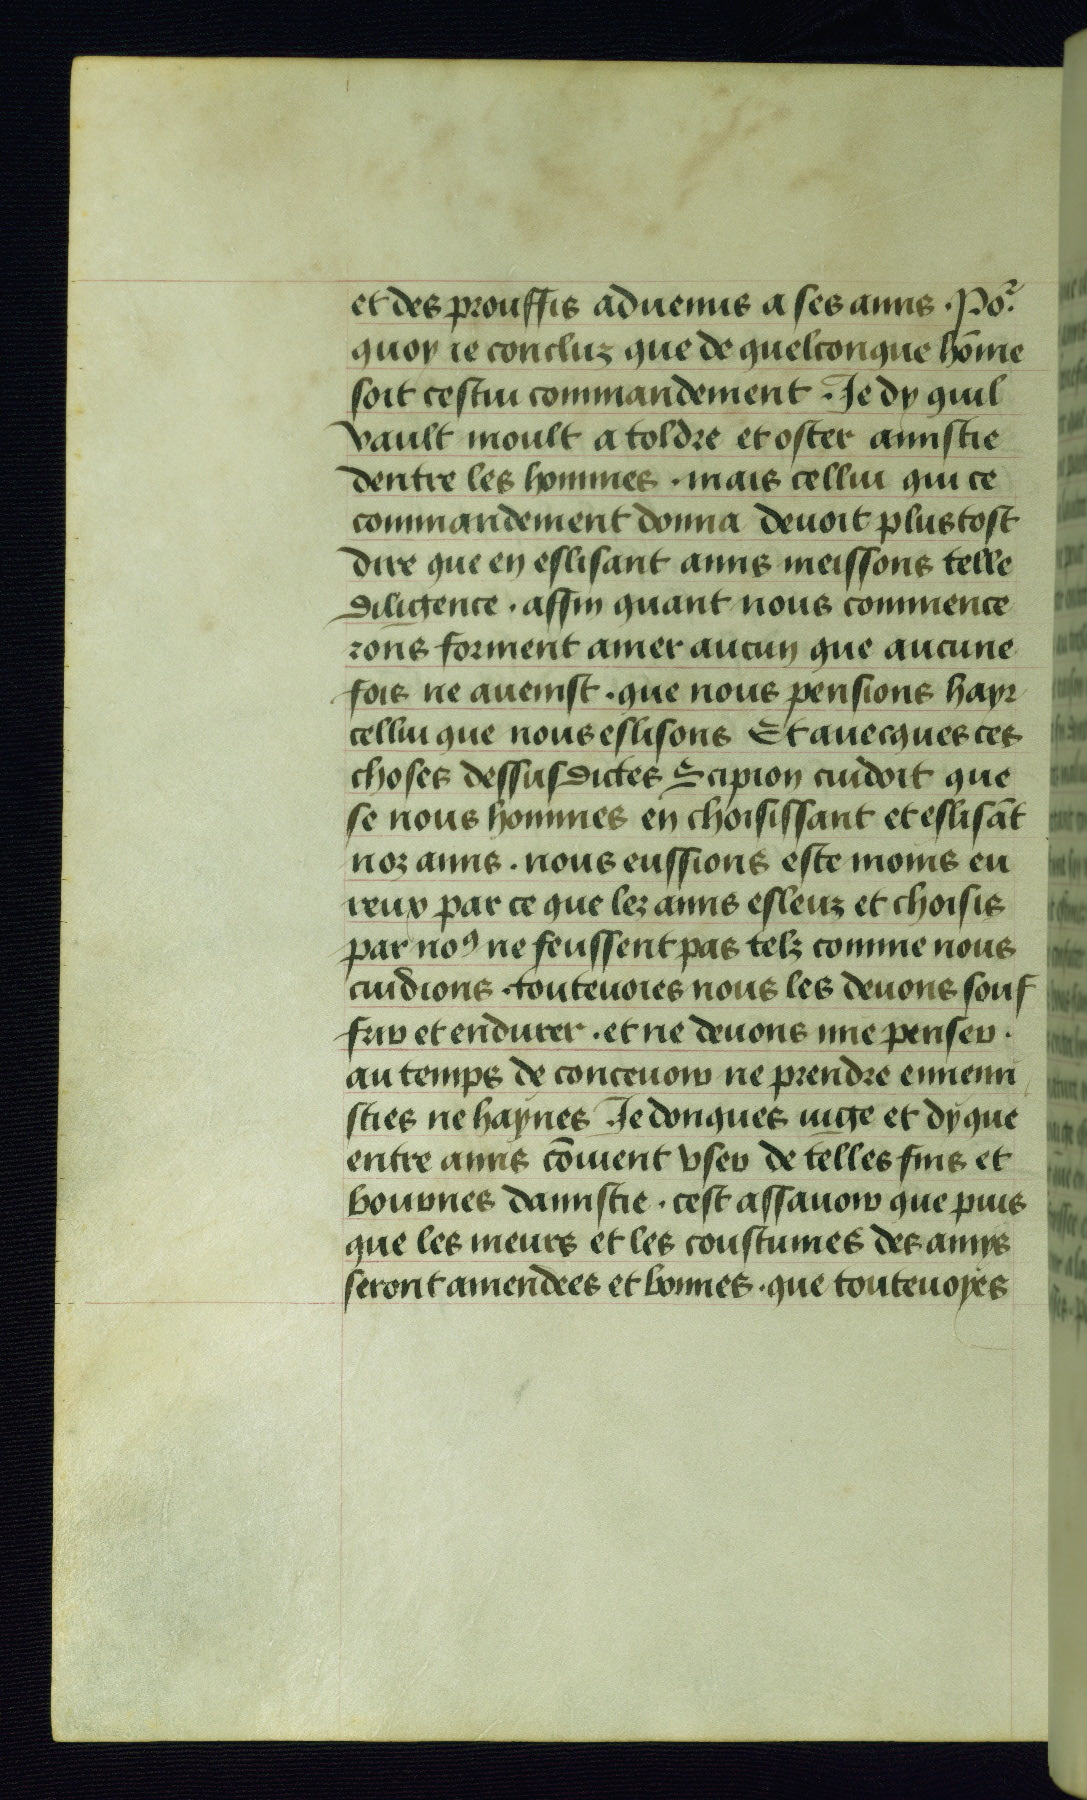 et des prouffis aduenus a ses amis . Po᷑.
quoy ie concluz que de quelconque hōme
soit cestui commandement . Je dy quil
vault moult a toldre et oster amistie
dentre les hommes . mais cellui qui ce
commandement donna deuoit plustost
dire que en eslisant amis meissons telle
diligence . affin quant nous commence
rons forment amer aucun que aucune
fois ne auenist . que nous pensions hayr
cellui que nous eslisons Et auecques ces
choses dessusdictes Scipion cuidoit que
se nous hommes en choisissant et eslisāt
noz amis . nous eussions este moins eu
reux par ce que lez amis esleuz et choisis
par noꝰ ne feussent pas telz comme nous
cuidions . touteuoies nous les deuons souf
frir et endurer . et ne deuons mie penser .
au temps de conceuoir ne prendre ennemi
sties ne haynes Je donques iuge et dy que
entre amis cōuient vser de telles fins et
bournes damistie . cest assauoir que puis
que les meurs et les coustumes des amys
seront amendees et bonnes . que touteuoyes